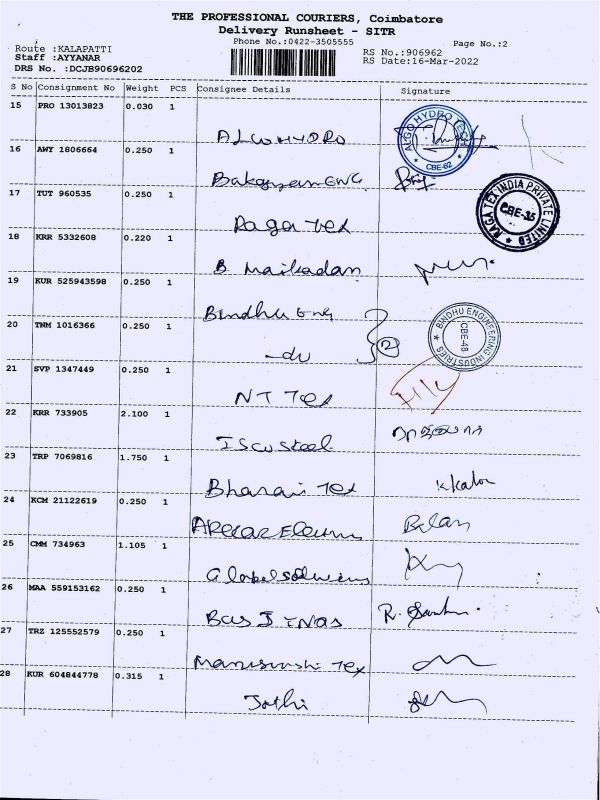 THE PROFESSIONAL COURIERS, Coimbatore
Delivery Runsheet - SITR
Phone No.:0422-3505555
Page No.:2
Route :KALAPATTI
Staff :AYYANAR
DRS No. :DCJB90696202
RS No.:906962
RS Date:16-Mar-2022
S No Consignment No Weight PCS Consignee Details Signature
15 PRO 13013823 0.030 1
ALGO HYDRO
ALGO HYDRO TECH
CBE-62
16 AWY 1806664 0.250 1
17 TUT 960535 0.250 1
Raga Tex
RAGA TEX INDIA PRIVATE LIMITED
CBE-35
18 KRR 5332608 0.220 1
19 KUR 525943598 0.250 1
Bindhu Eng
20 TNM 1016366 0.250 1
-do
2
BINDHU ENGINEERING INDUSTRIES
CBE-48
21 SVP 1347449 0.250 1
NT Tex
22 KRR 733905 2.100 1
Isco Steel
23 TRP 7069816 1.750 1
Bharani Tex
24 KCM 21122619 0.250 1
25 CMM 734963 1.105 1
Global
26 MAA 559153162 0.250 1
27 TRZ 125552579 0.250 1
Tex
28 KUR 604844778 0.315 1
Jothi